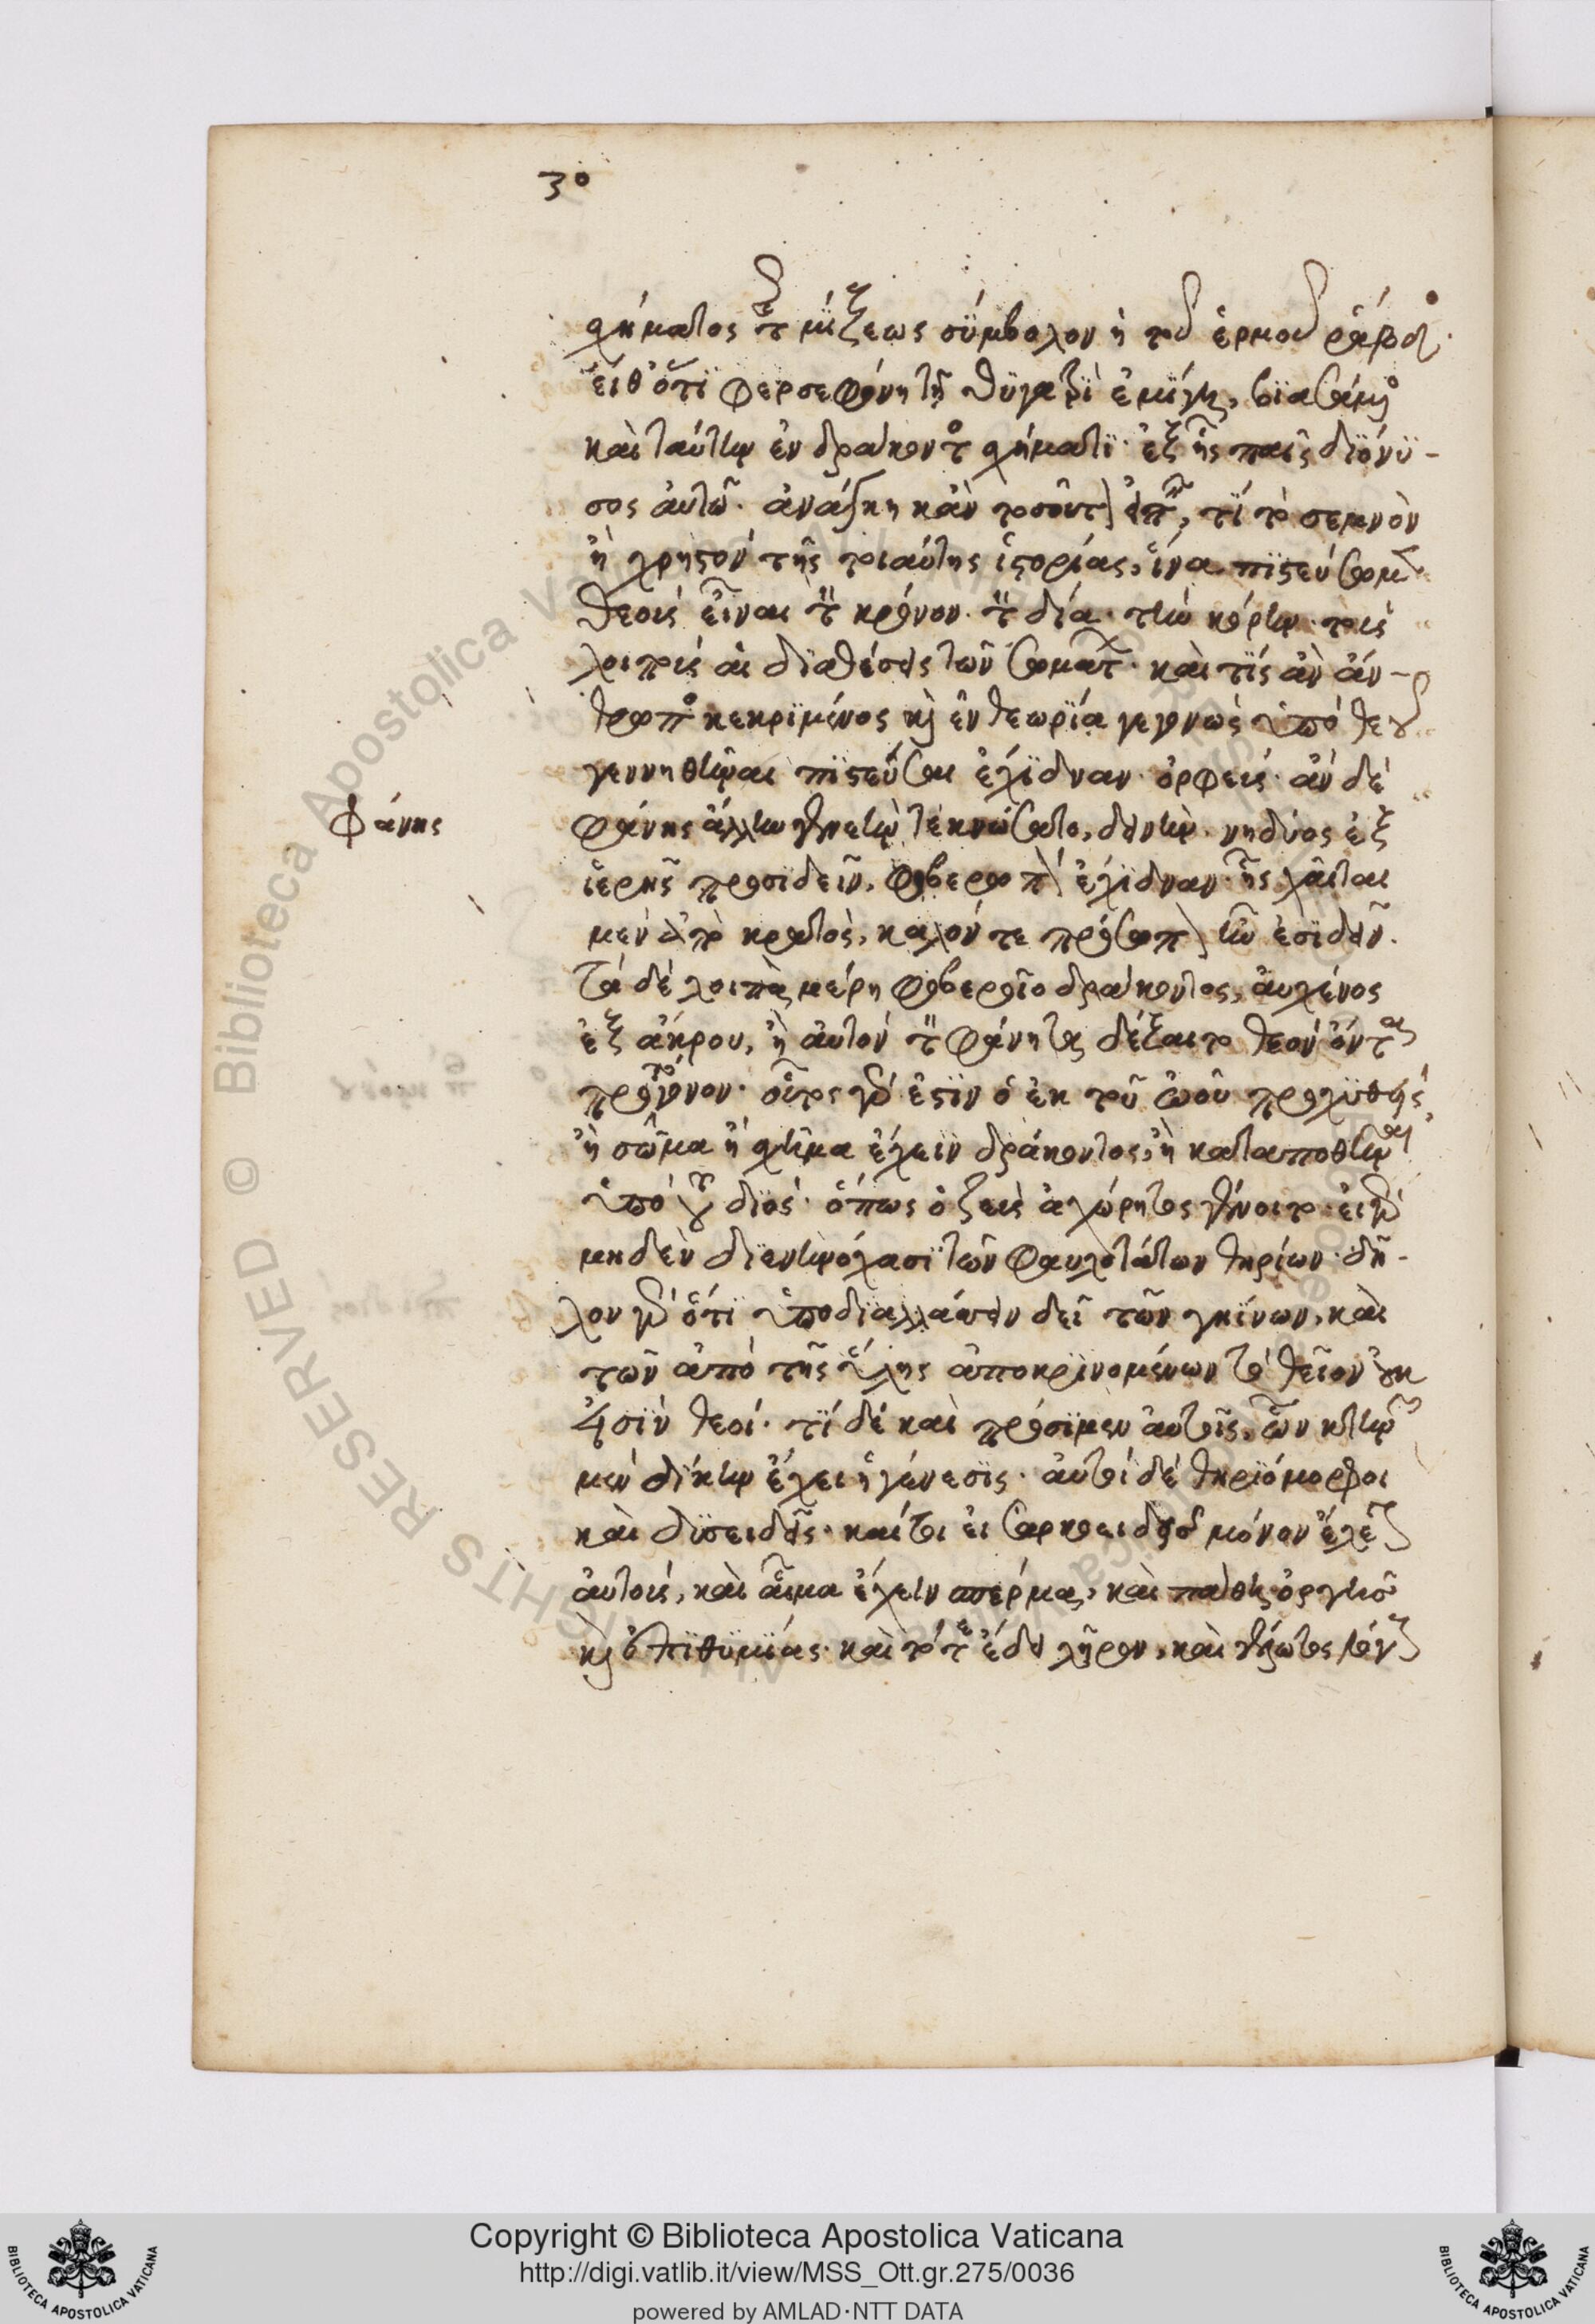 30
σχήματος τῆς μίξεως σύμβολον ἡ τοῦ ἑρμοῦ ῥάβδος.
εἶθ' ὅτι φερσεφόνῃ τῇ θυγατρὶ ἐμίγη, βιασάμενος
καὶ ταύτην ἐν δράκοντος σχήματι· ἐξ ἧς παῖς διόνυ-
σος αὐτῶ. ἀνάγκη κἂν τοσοῦτον εἰπεῖν, τί τὸ σεμνὸν
ἢ χρηστὸν τῆς τοιαύτης ἱστορίας, ἵνα πιστεύσωμεν
θεοὺς εἶναι τὸν κρόνον. τὸν δία. τὴν κόρην. τοὺς
λοιποὺς αἱ διαθέσεις τῶν σωμάτων. καὶ τίς ἂν ἄν-
θρωπος κεκριμένος καὶ ἐν θεωρία γεγονὼς ὑπὸ θεοῦ
γεννηθῆναι πιστεύσαι ἔχιδναν. ὀρφεύς. ἂν δὲ
Φάνης
φάνης ἄλλην γενεὴν τεκνώσατο, δεινὴν. νηδύος ἐξ
ἱερῆς προσιδεῖν, φοβερωπὸν ἔχιδναν. ἧς χαῖται
μὲν ἀπὸ κρατὸς, καλόν τε πρόσωπον ἦν ἐσιδεῖν.
τὰ δὲ λοιπὰ μέρη φοβεροῖο δράκοντος, αὐχένος
ἐξ ἄκρου, ἢ αὐτὸν τὸν φάνητα δέξαιτο θεὸν ὄντα
πρωτόγονον. οὗτος γάρ ἐστιν ὁ ἐκ τοῦ ὠοῦ προχυθείς,
ἢ σῶμα ἢ σχῆμα ἔχειν δράκοντος, ἢ καταποθῆναι
ὑπὸ τοῦ διὸς. ὅπως ὁ ζεὺς ἀχώρητος γένοιτο. εἰ γὰρ
μηδὲν διενηνόχασι τῶν φαυλοτάτων θηρίων. δῆ-
λον γὰρ ὅτι ὑποδιαλλάσσειν δεῖ τῶν γηίνων, καὶ
τῶν ἀπὸ τῆς ὕλης ἀποκρινομένων τὸ θεῖον οὐκ
εἰσὶν θεοί. τί δὲ καὶ πρόσιμεν αὐτοῖς, ὧν κτηνῶν
μὲν δίκην ἔχει ἡ γένεσις. αὐτοὶ δὲ θηριόμορφοι
καὶ δυσειδεῖς. καίτοι εἰ σαρκοειδεῖς μόνον ἔλεγον
αὐτοὺς, καὶ αἷμα ἔχειν σπέρμα, καὶ πάθη ὀργῆς
καὶ ἐπιθυμίας. καὶ τότε ἔδει λῆρον, καὶ γέλωτος λόγους
Copyright © Biblioteca Apostolica Vaticana
http://digi.vatlib.it/view/MSS_Ott.gr.275/0036
powered by AMLAD·NTT DATA